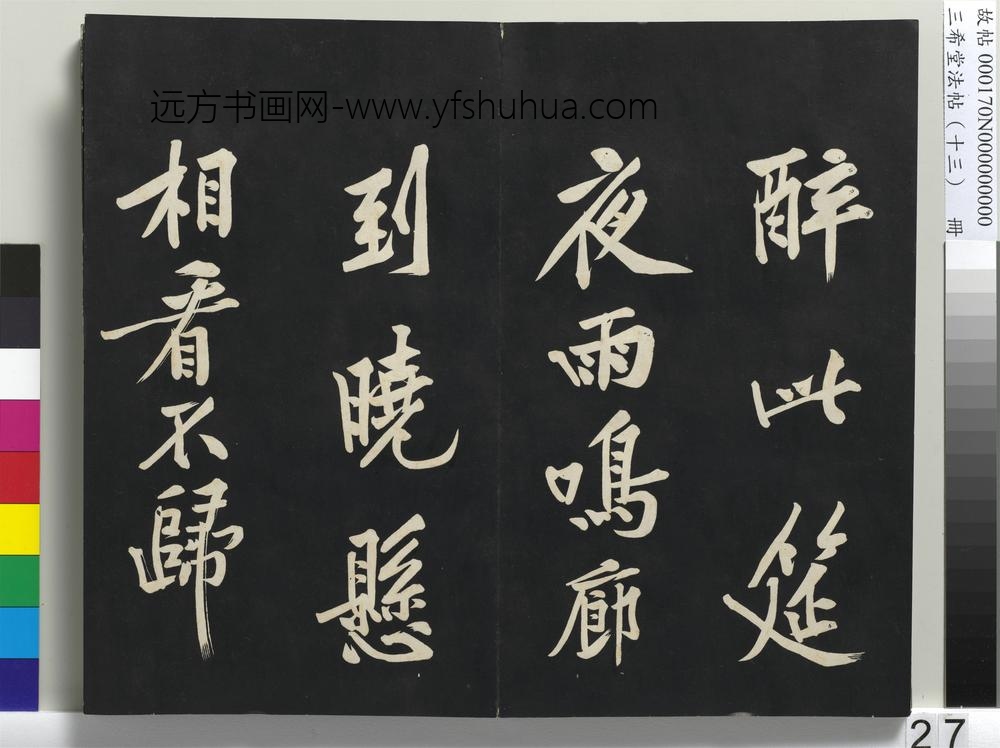 远方书画网-www.yfshuhua.com
醉此筵
夜雨鳴廊
到曉懸
相看不歸
故帖 000170N000000000
三希堂法帖（十三） 冊
27